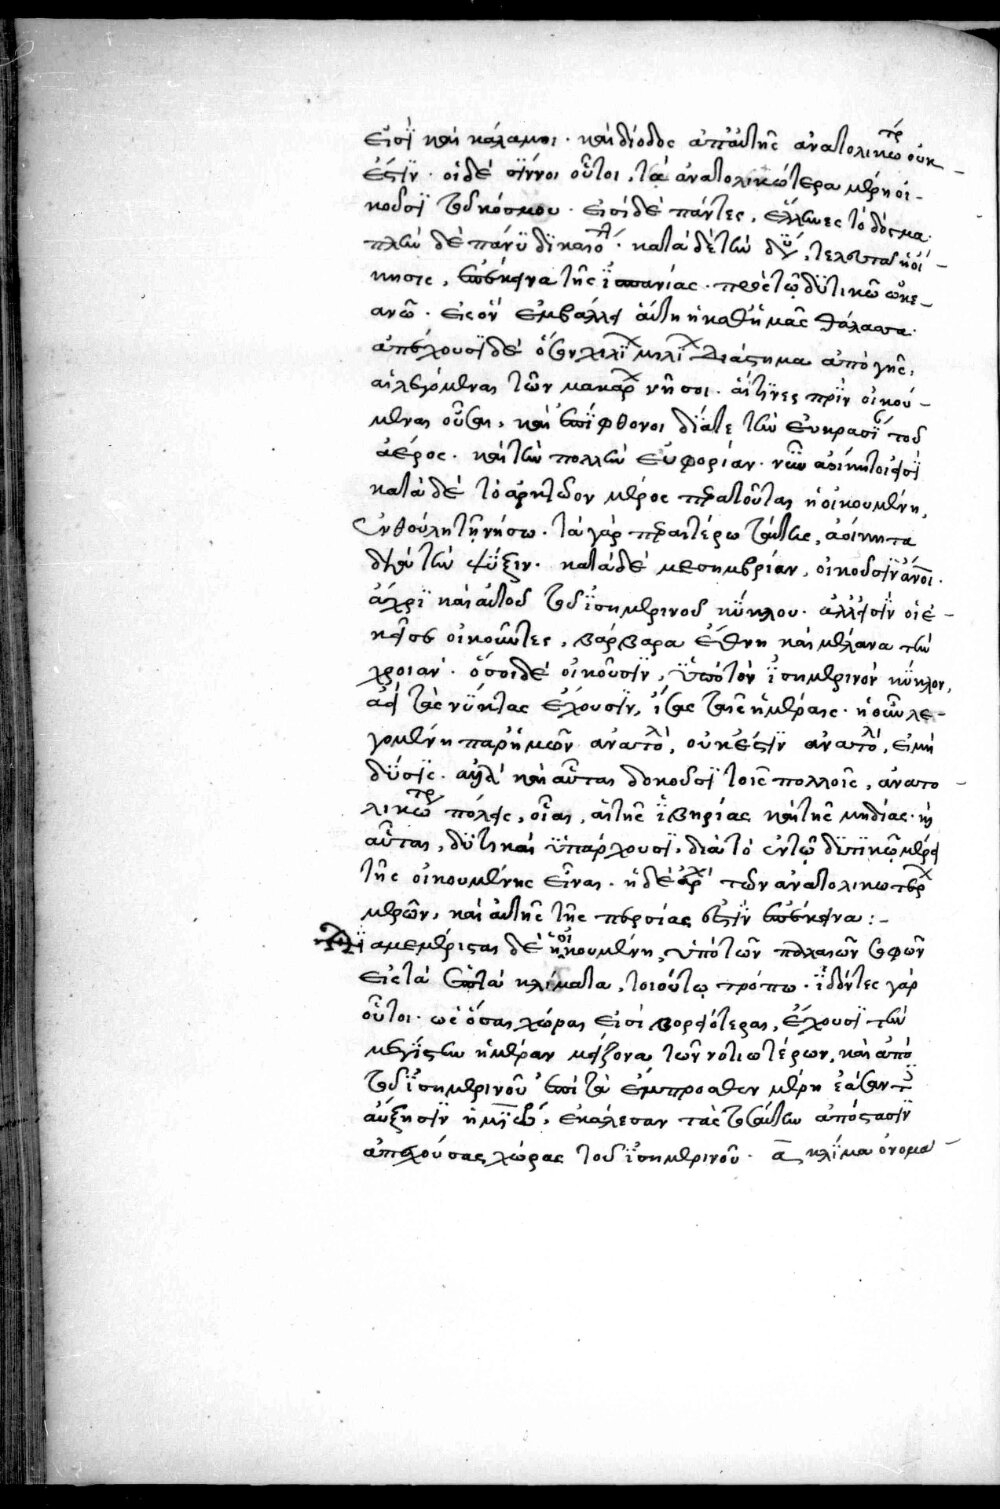 εἰσὶ καὶ κάλαμοι· καὶ δίοδος ἀπ' αὐτῆς ἀνατολικωτρ οὐκ
ἔστιν· οἱ δὲ σῖνοι οὗτοι, τὰ ἀνατολικώτερα μέρη οἰ-
κοῦσι τοῦ κόσμου· εἰσὶ δὲ πάντες, ἕλληνες τὸ δόγμα·
πλὴν δὲ πάνυ δικαιότ· κατὰ δὲ τὴν δύ, τελευταῖ ἡ οἴ-
κησις, τῆς ἱσπανίας· πρὸς τῷ δυτικῷ ὠκε-
ανῷ· εἰς ὃν ἐμβάλλει αὕτη ἡ καθ' ἡμᾶς θάλασσα·
ἀπέχουσι δὲ διάστημα ἀπὸ γῆς,
αἱ λεγόμεναι τῶν μακάρ νῆσοι· αἵτινες πρὶν οἰκού-
μεναι οὖσαι, καὶ διά τε τὴν εὐκρασί τοῦ
ἀέρος· καὶ τὴν πολλὴν εὐφορίαν· νῦν ἀοίκητοι εἰσί
κατὰ δὲ τὸ ἀρκτῷον μέρος περατοῦται ἡ οἰκουμένη,
ἐν θούλῃ τῇ νήσῳ· τὰ γὰρ περαιτέρω ταύτης, ἀοίκητα
διὰ τὴν ψύξιν· κατὰ δὲ μεσημβρίαν, οἰκοῦσιν ἄνοι·
ἄχρι καὶ αὐτοῦ τοῦ ἰσημερινοῦ κύκλου· ἀλλ' εἰσὶν οἱ ἐ-
κεῖσε οἰκοῦντες, βάρβαρα ἔθνη καὶ μέλανα τὴν
χροιάν· ὅσοι δὲ οἰκοῦσιν, ὑπὸ τὸν ἰσημερινὸν κύκλον,
ἀεὶ τὰς νύκτας ἔχουσιν, ἴσας ταῖς ἡμέραις· ἡ οὖν λε-
γομένη παρ' ἡμῶν ἀνατολ, οὐκ ἔστιν ἀνατολ, εἰ μὴ
δύσις· ἀλλὰ καὶ αὗται δοκοῦσι τοῖς πολλοῖς, ἀνατο-
λικωτρ πόλεις, οἷαι, αἱ τῆς ἰβηρίας καὶ τῆς μηδίας· καὶ
αὗται, δυτικαὶ ὑπάρχουσι, διὰ τὸ ἐν τῷ δυτικῷ μέρει
τῆς οἰκουμένης εἶναι· ἡ δὲ ἀρχ τῶν ἀνατολικωτέρ
μερῶν, καὶ αὐτῆς τῆς περσίας ἐστὶν ἐπέκεινα:-
Διαμεμέρισται δὲ ἡ οἰκουμένη, ὑπὸ τῶν παλαιῶν σοφῶν
εἰς τὰ ἑπτὰ κλίματα, τοιούτῳ τρόπῳ· ἰδόντες γὰρ
οὗτοι· ὡς ὅσαι χώραι εἰσὶ βορειότεραι, ἔχουσι τὴν
μεγίστην ἡμέραν μείζονα τῶν νοτιωτέρων, καὶ ἀπὸ
τοῦ ἰσημερινοῦ ἐπὶ τὰ ἔμπροσθεν μέρη
αὔξησιν, ἐκάλεσαν τὰς τὴν ἀπόστασιν
ἀπεχούσας χώρας τοῦ ἰσημερινοῦ· α κλίμα ὄνομα-